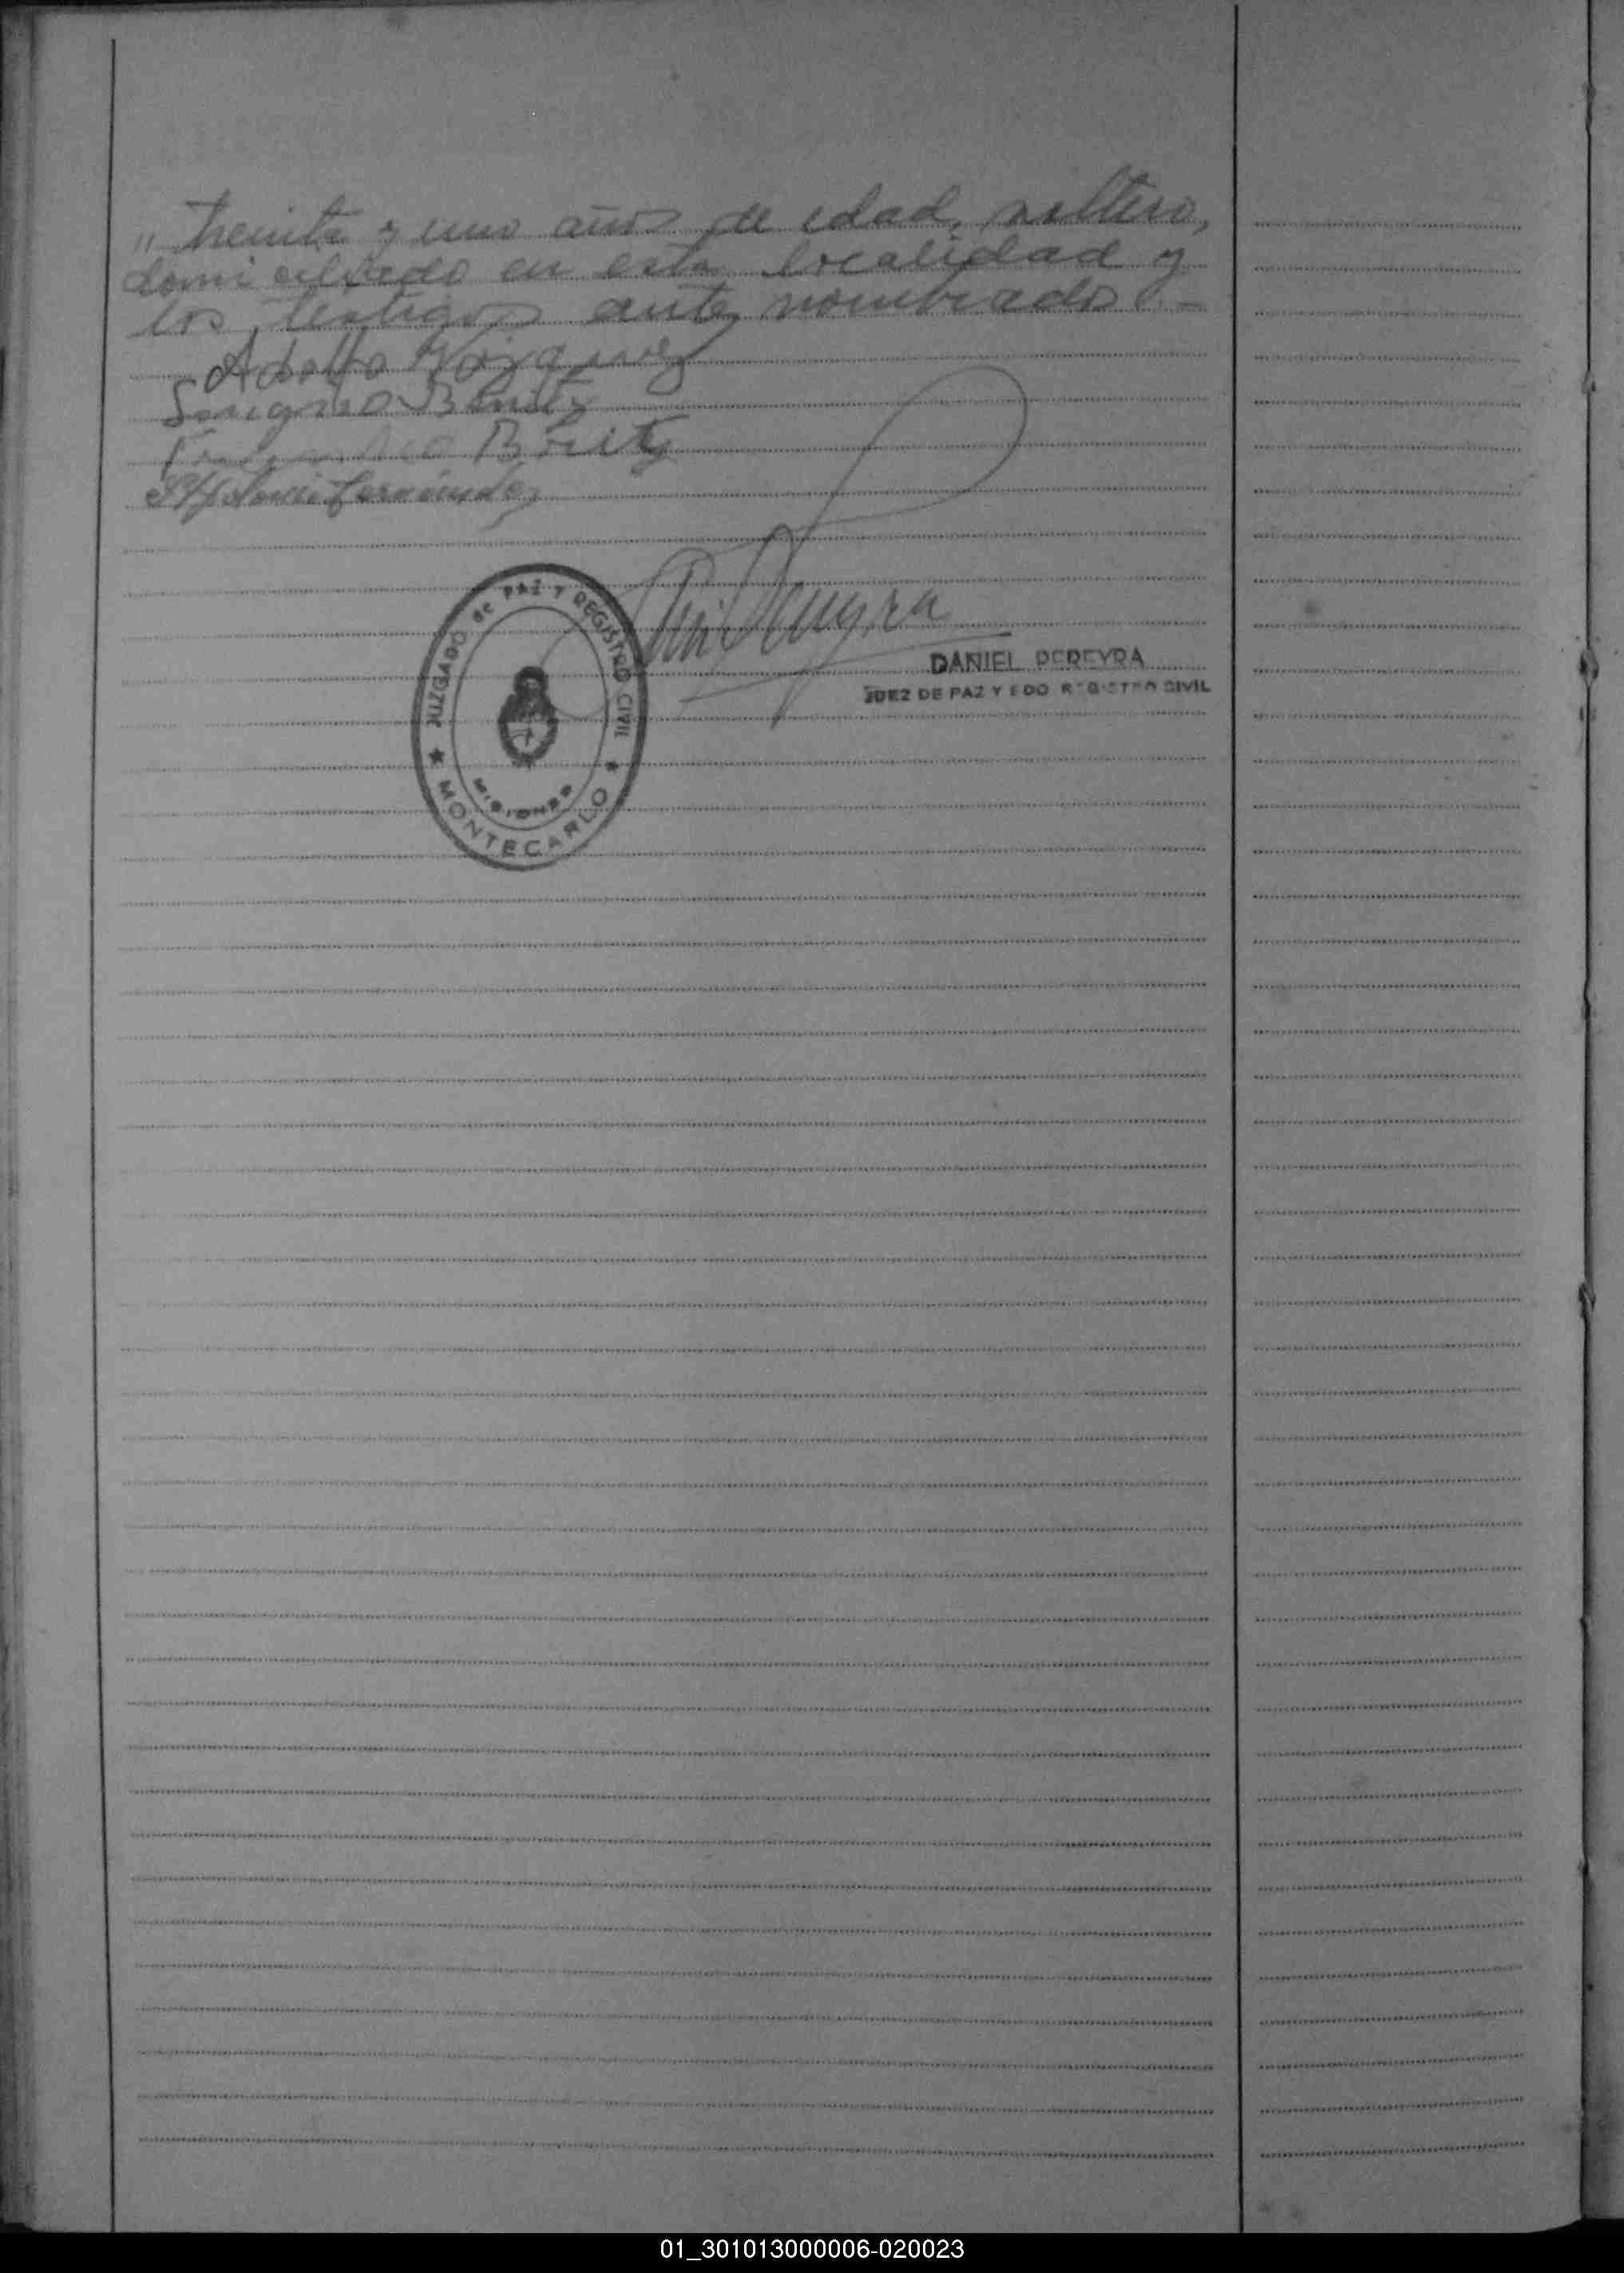 " treinta y uno años de edad, soltero,
domiciliado en esta localidad y
los testigos ante nombrados. -
Adolfo Vázquez
Benitez
Britez
Fernández
JUZGADO DE PAZ Y REGISTRO CIVIL
MISIONES
MONTECARLO
DANIEL PEREYRA
JUEZ DE PAZ Y EDO REGISTRO CIVIL
01_301013000006-020023